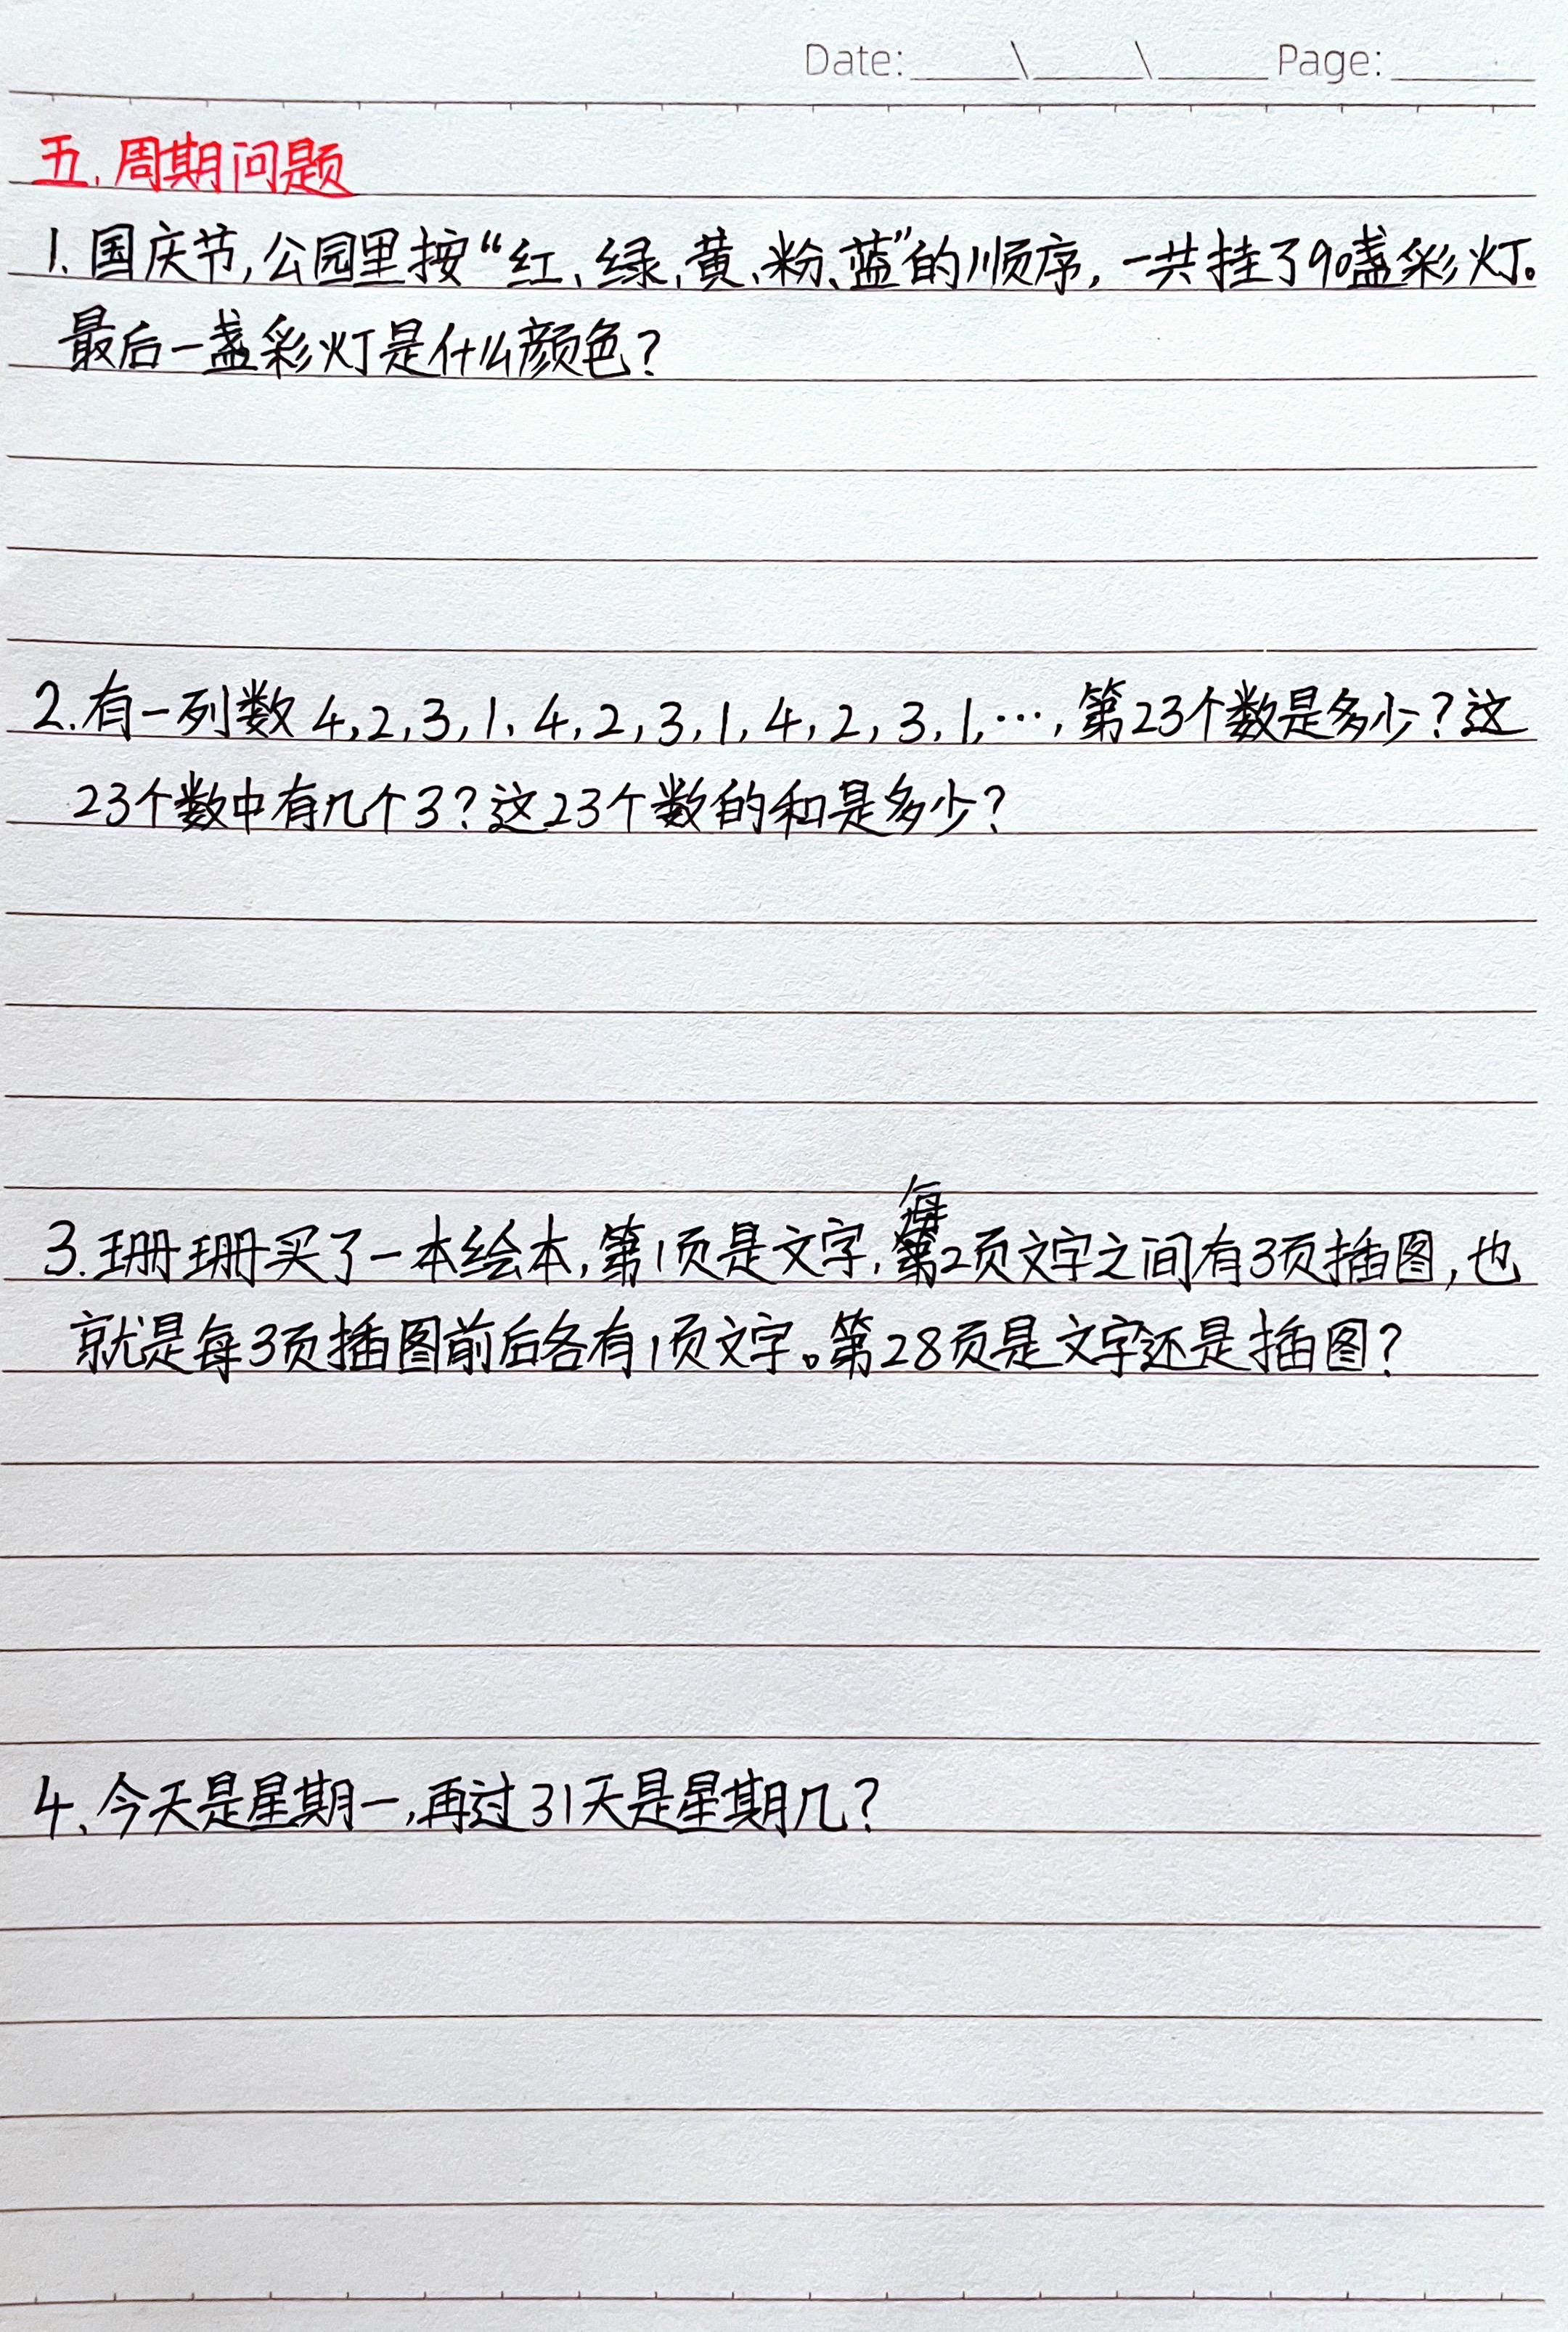 Date:_____\_____\_____Page:______
五.周期问题
1.国庆节,公园里按“红、绿、黄、粉、蓝”的顺序,一共挂了90盏彩灯。
最后一盏彩灯是什么颜色?
2.有一列数4,2,3,1,4,2,3,1,4,2,3,1,…,第23个数是多少?这
23个数中有几个3?这23个数的和是多少?
3.珊珊买了一本绘本,第1页是文字,每2页文字之间有3页插图,也
就是每3页插图前后各有1页文字。第28页是文字还是插图?
4、今天是星期一,再过31天是星期几?